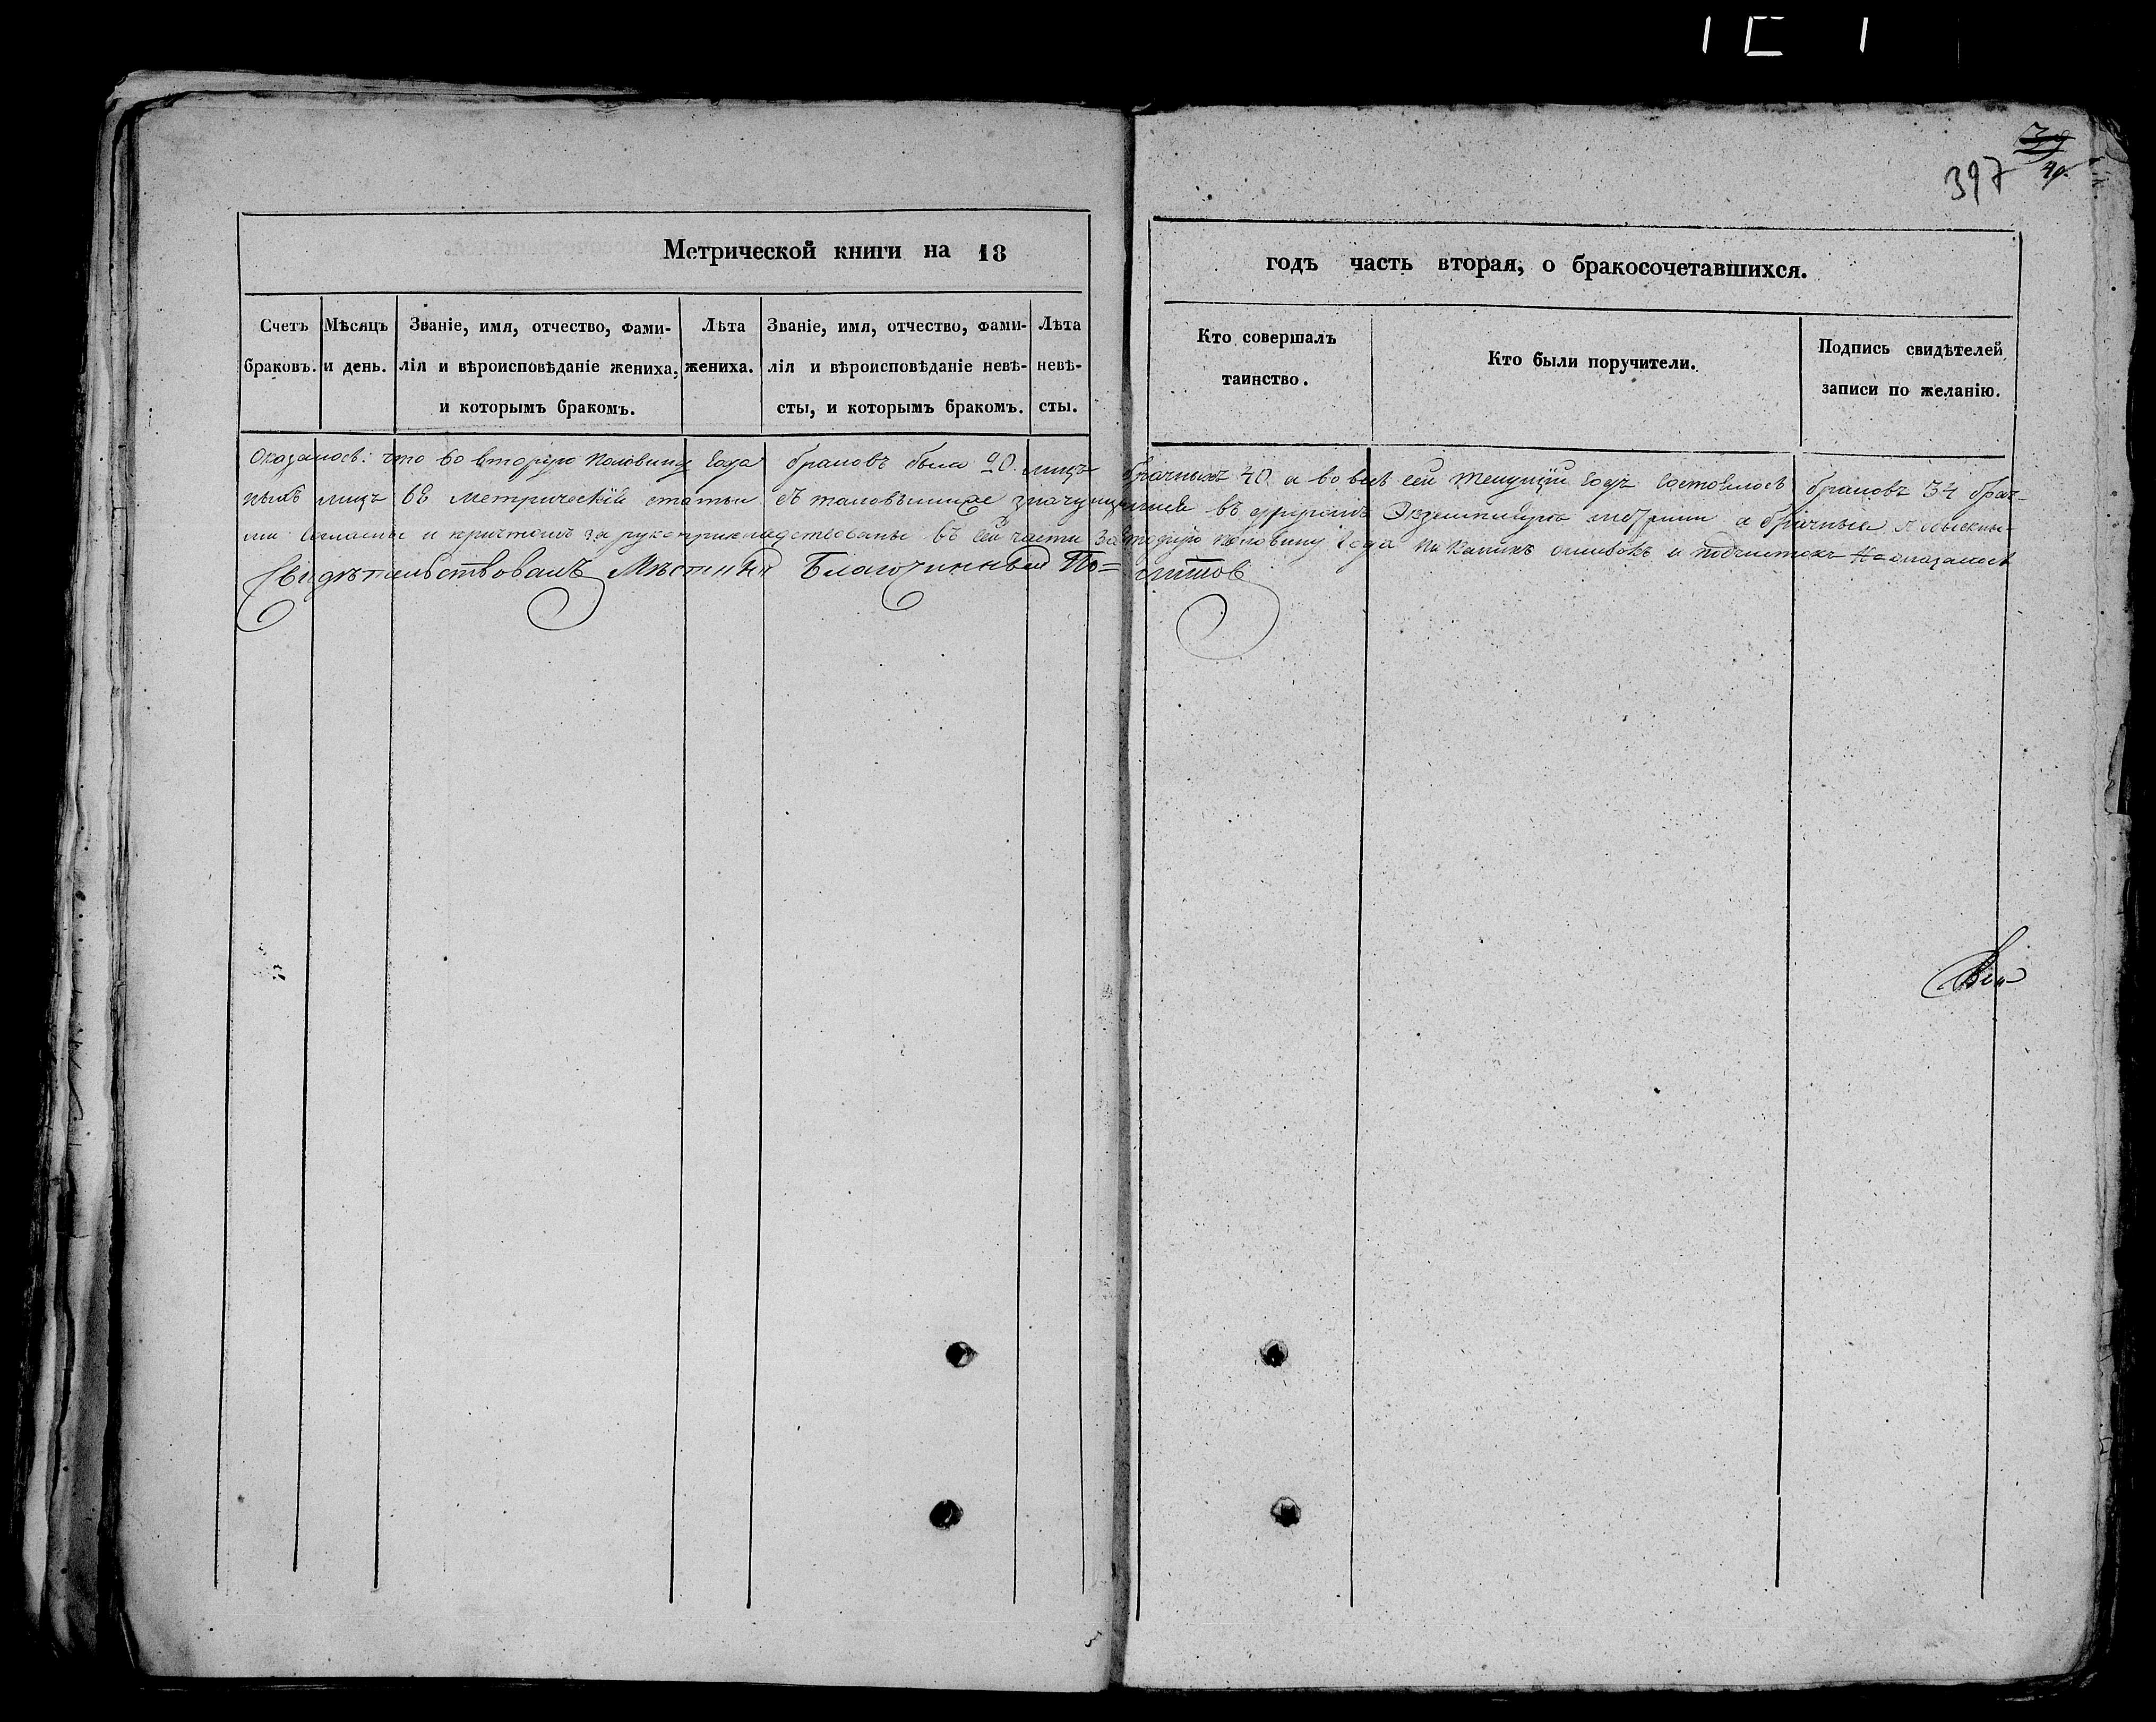 39
397 40.
Метрической книги на 18
годъ часть вторая, о бракосочетавшихся.
Счетъ браковъ.
Мѣсяцъ и день.
Званіе, имя, отчество, фами-
лія и вѣроисповѣданіе жениха,
и которымъ бракомъ.
Лѣта
жениха.
Званіе, имя, отчество, фами-
лія и вѣроисповѣданіе невѣ-
сты, и которымъ бракомъ.
Лѣта
невѣ-
сты.
Кто совершалъ
таинство.
Кто были поручители.
Подпись свидѣтелей
записи по желанію.
Оказалось: что во вторую половину года браковъ было 20. лицъ брачныхъ 40 а во весь сей текущій годъ состоялось браковъ 34 брач-
ныхъ лицъ 68 метрическія статьи съ таковыми же значущимися въ другомъ экземплярѣ метрики а брачныя
ми согласны и причтомъ за рукоприкладствованы въ сей части за вторую половину года ни какихъ ошибокъ и подчистокъ не оказалось
Свидѣтельствовалъ Мѣстный Благочинный